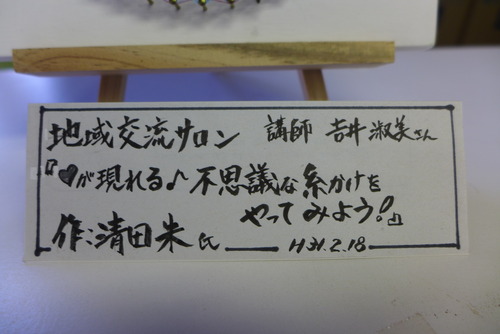 地域交流サロン 講師 吉井淑美さん
『♥が現れる♪不思議な糸かけを
やってみよう!』
作:清田朱氏 H31.2.18